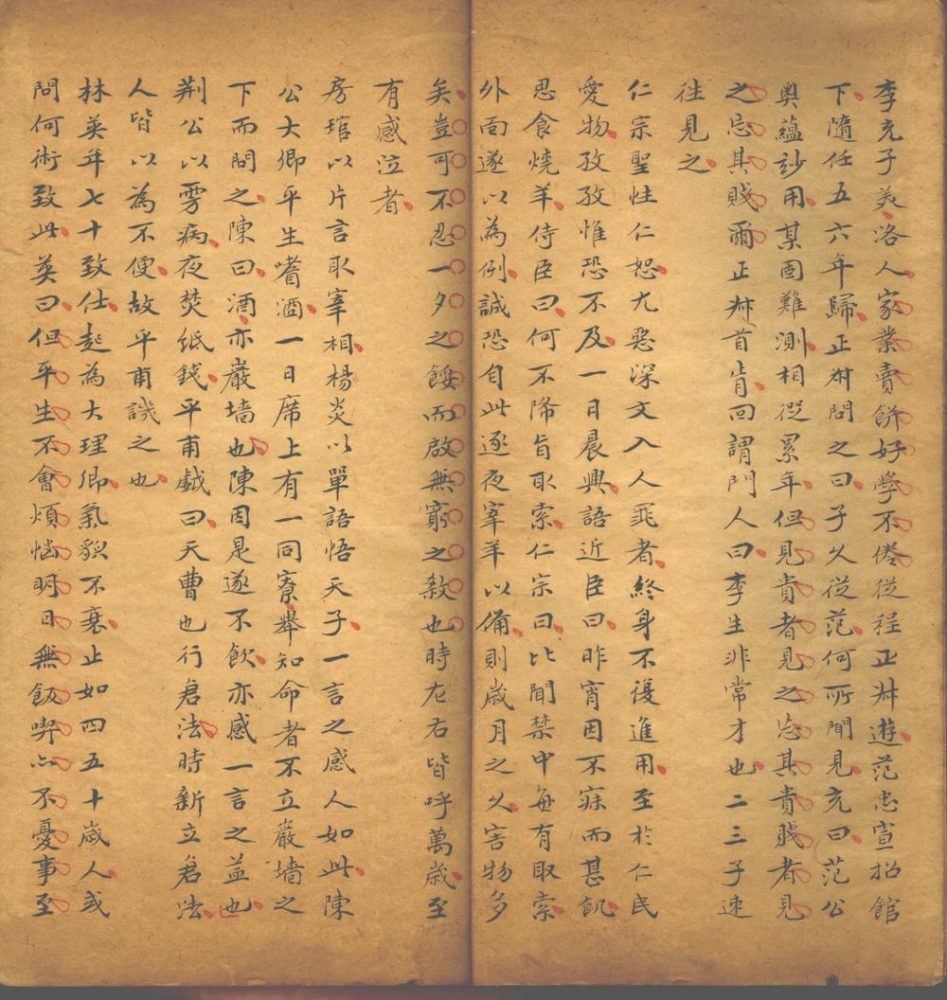 李充子美洛人家業賣餅好學不倦從程正叔遊范忠宣招館
下隨任五六年歸正叔問之曰子久從范何所聞見充曰范公
奧蘊妙用某固難測相從累年但見貴者見之忘其貴賤者見
之忘其賤爾正叔首肯回謂門人曰李生非常才也二三子速
徃見之
仁宗聖性仁恕尤惡深文入人罪者終身不復進用至於仁民
愛物孜孜惟恐不及一日晨興語近臣曰昨宵因不寐而甚飢
思食燒羊侍臣曰何不降旨取索仁宗曰比聞禁中每有取索
外面遂以為例誠恐自此逐夜宰羊以備則歲月之久害物多
矣豈可不忍一夕之餒而啟無窮之殺也時左右皆呼萬歲至
有感泣者
房琯以片言取宰相楊炎以單語悟天子一言之感人如此陳
公大卿平生嗜酒一日席上有一同寮舉知命者不立巖墻之
下而問之陳曰酒亦巖墻也陳因是遂不飲亦感一言之益也
荆公以雱病夜焚紙錢平甫戲曰天曹也行倉法時新立倉法
人皆以為不便故平甫譏之也
林英年七十致仕起為大理卿氣貌不衰止如四五十歲人或
問何術致此英曰但平生不會煩惱明日無飯喫亦不憂事至